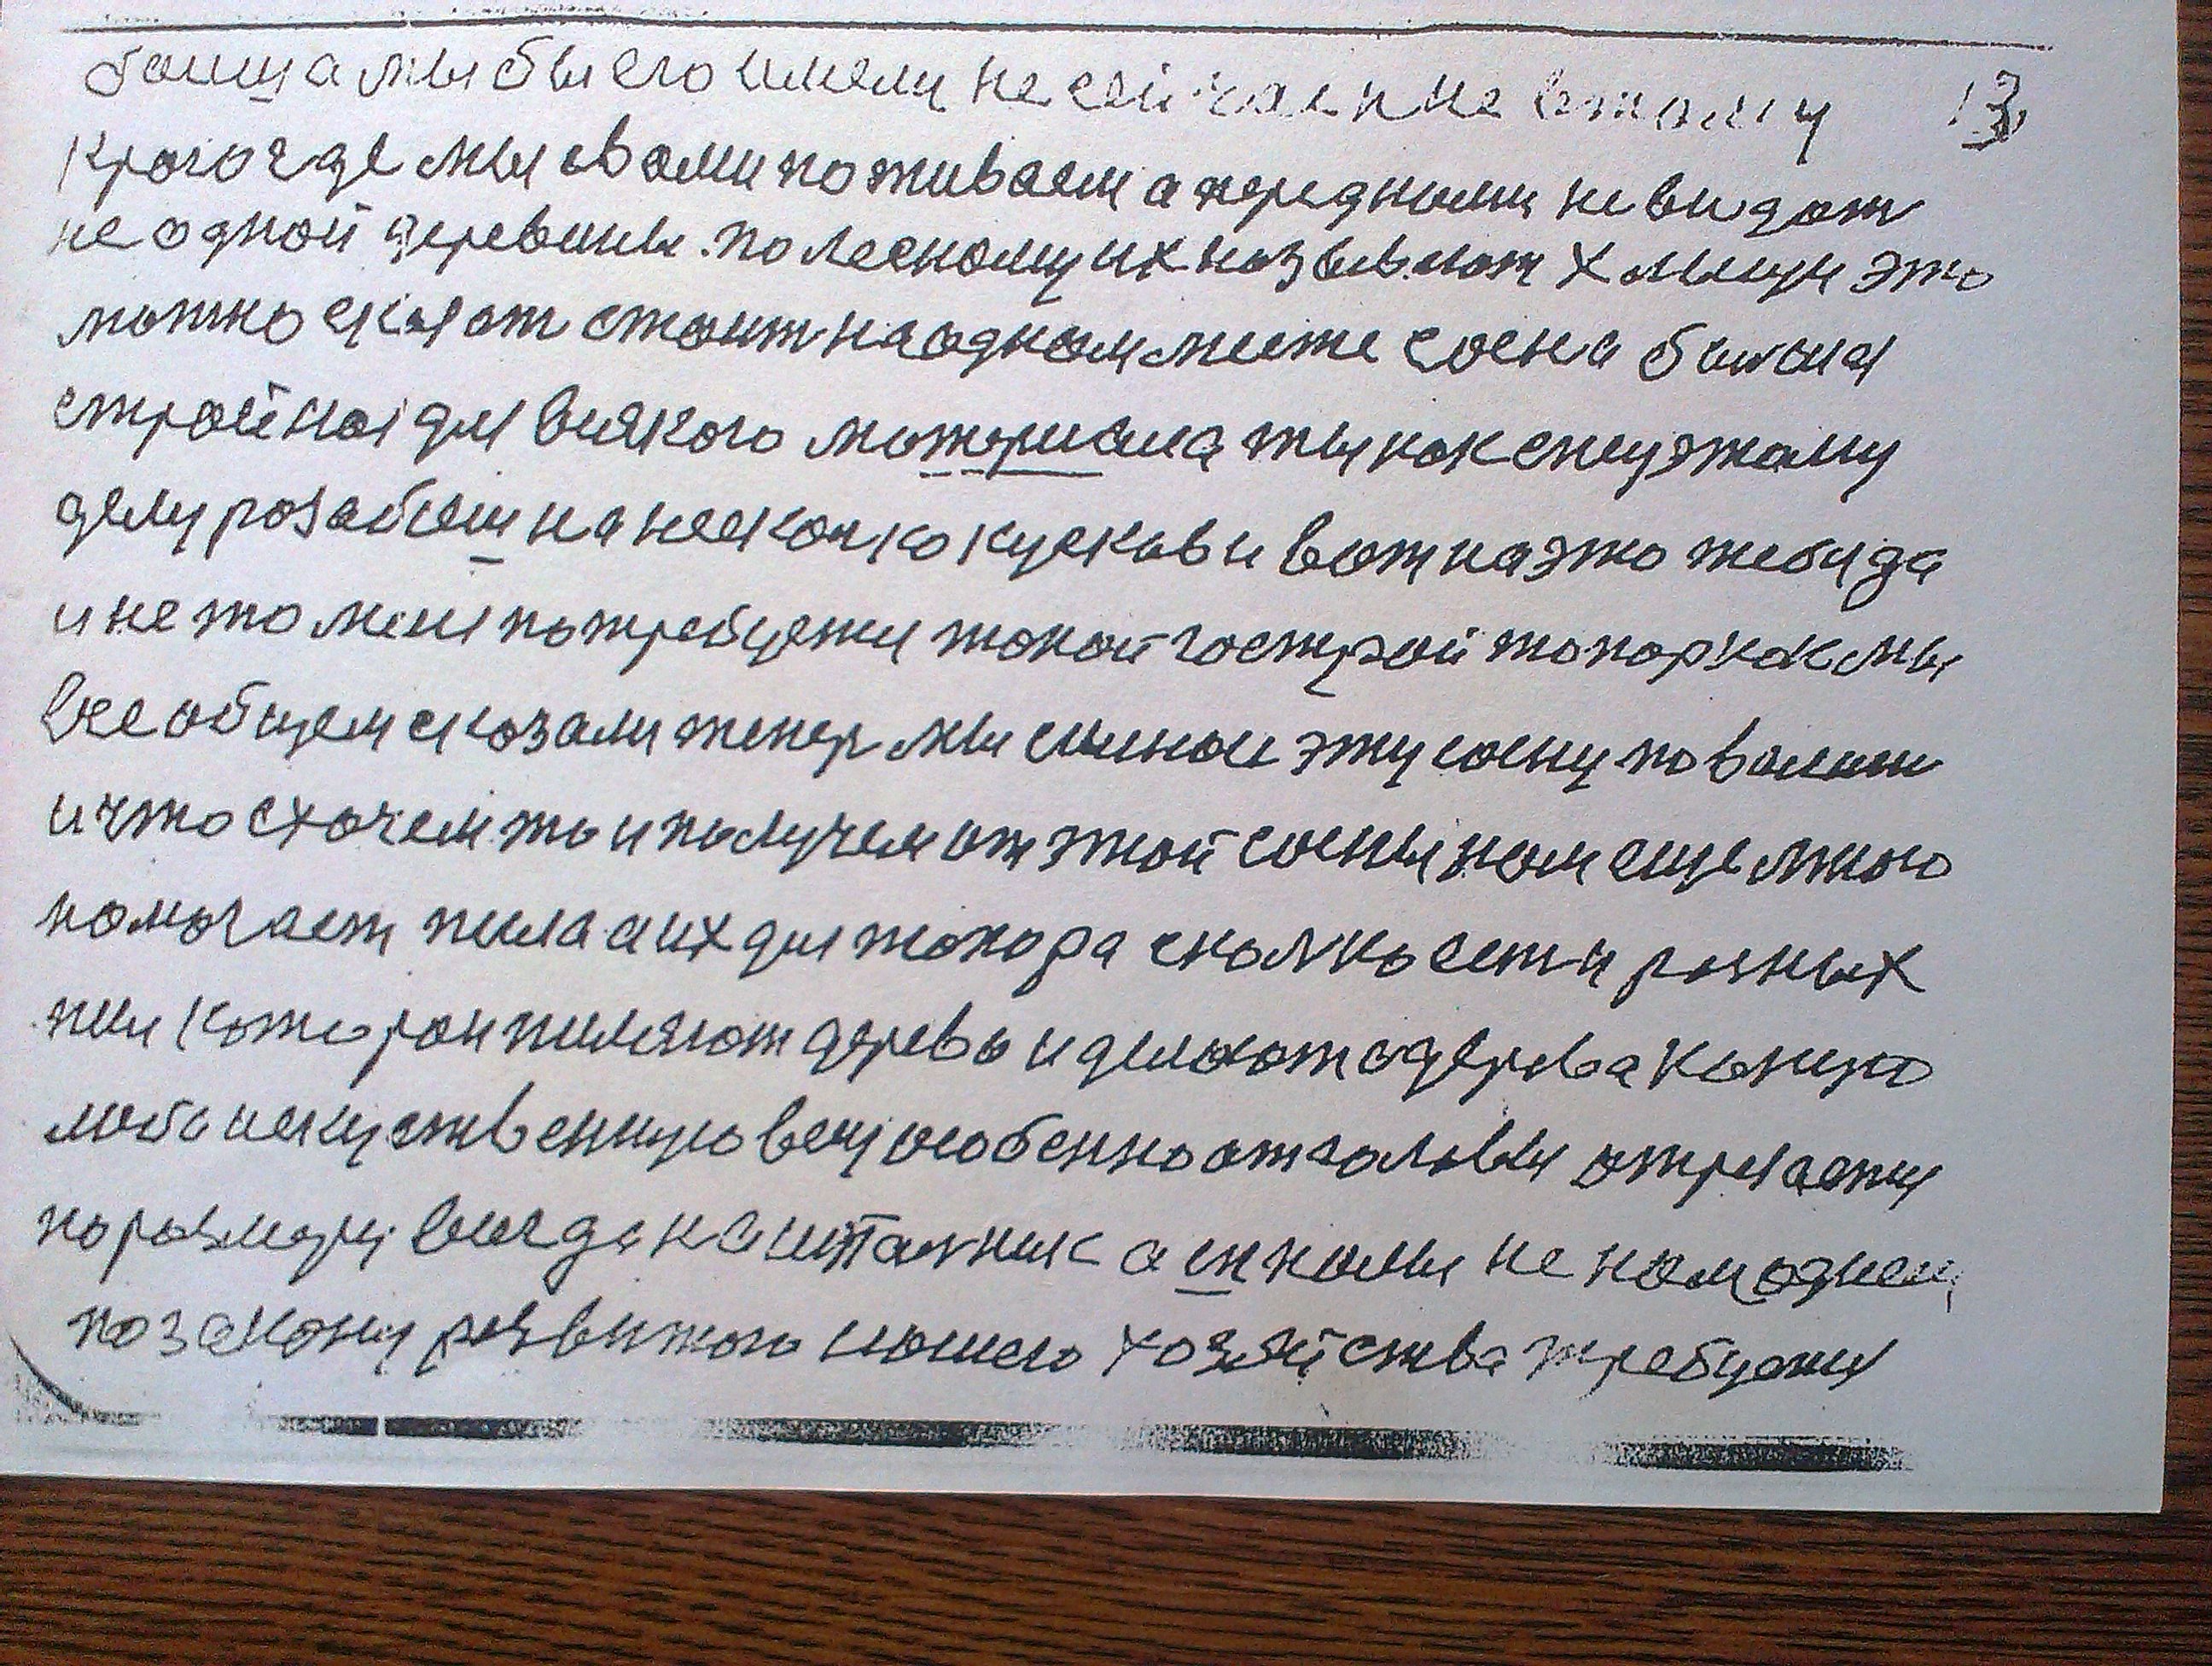 боица мы бы его имели не сейчас и не втому 13
краю где мы свами поживаем а перед нами невидат
не одной деревины. по лесному их называют хмыщи это
можно сказат стоит на одном месте сосна билшая
стройная для всякого мотериала ты как спец этому
делу розабеш на несколко кусков и вот на это тебя да
и не то мене потребуетця такой гострой топор как мы
все общем сказали тепер мы синой эту сосну повалим
и что схочем то и получем от этой сосны нам еще много
помогает пила а их для топора сколко есть розных
пил которои пиляют дерево и делают с дерева какую
либо искуственную вещ особенно от головы отрезаетця
по розмеру всегда на шпалник а с пнами не нам однем
по закону розвитого нашего хозяйства требуетця